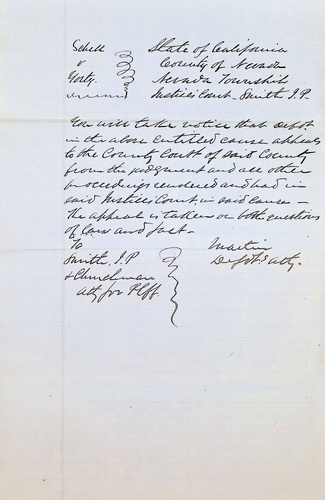 Schell State of California
v County of Nevada
Gorty. Nevada Township
Justices Court. Smith J.P.
You will take notice that Deft.
in the above entitled cause appeals
to the County Court of said County
from the judgment and all other
proceedings rendered and had in
said Justices Court in said cause —
The appeal is taken on both questions
of Law and fact.
To Martin
Smith, J.P. Deft's atty.
& Churchman
atty for Plff.